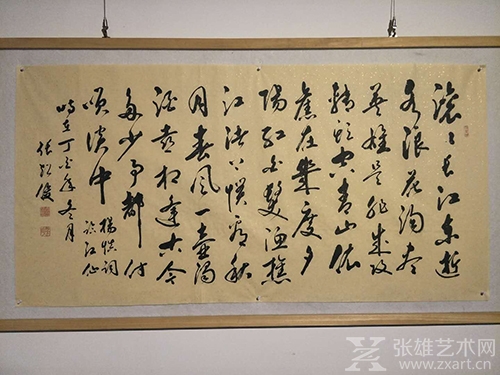 滚〻长江东逝
水浪花淘尽
英雄是非成败
转头空青山依
舊在幾度夕
阳红白髮渔樵
江渚上惯看秋
月春风一壶浊
酒喜相逢古今
多少事都付
笑谈中
楊慎詞
临江仙
时在丁酉年冬月
张俊
张雄艺术网
www.zxart.cn